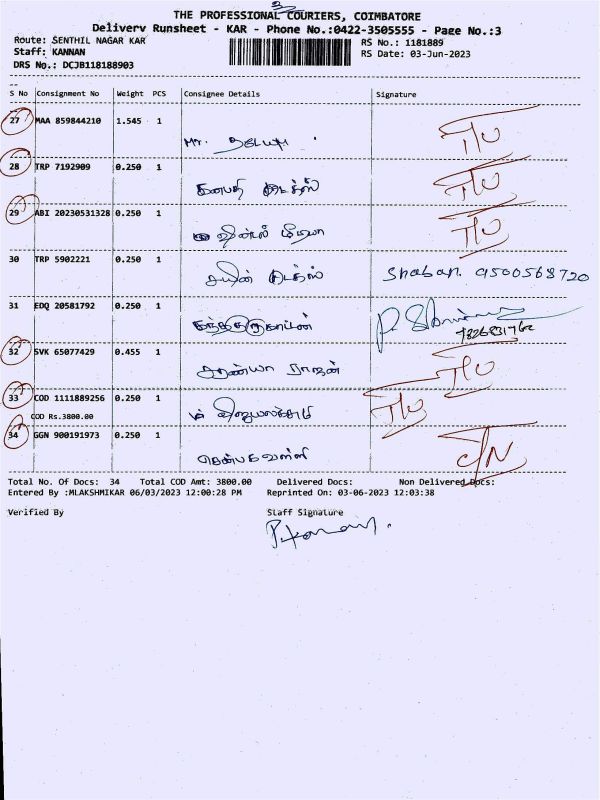 3
THE PROFESSIONAL COURIERS, COIMBATORE
Delivery Runsheet - KAR - Phone No.:0422-3505555 - Page No.:3
Route: SENTHIL NAGAR KAR
RS No.: 1181889
Staff: KANNAN
RS Date: 03-Jun-2023
DRS No.: DCJB118188903
S No Consignment No Weight PCS Consignee Details Signature
27 MAA 859844210 1.545 1
T/U
Mr.
28 TRP 7192909 0.250 1
T/U
29 ABI 20230531328 0.250 1
T/U
30 TRP 5902221 0.250 1
Shaban. 9500568720
31 EDQ 20581792 0.250 1
32 SVK 65077429 0.455 1
சரண்யா ராஜன்
T/U
33 COD 1111889256 0.250 1
COD Rs.3800.00
T/U
34 GGN 900191973 0.250 1
C/N
Total No. Of Docs: 34 Total COD Amt: 3800.00 Delivered Docs: Non Delivered Docs:
Entered By :MLAKSHMIKAR 06/03/2023 12:00:28 PM Reprinted On: 03-06-2023 12:03:38
Verified By Staff Signature